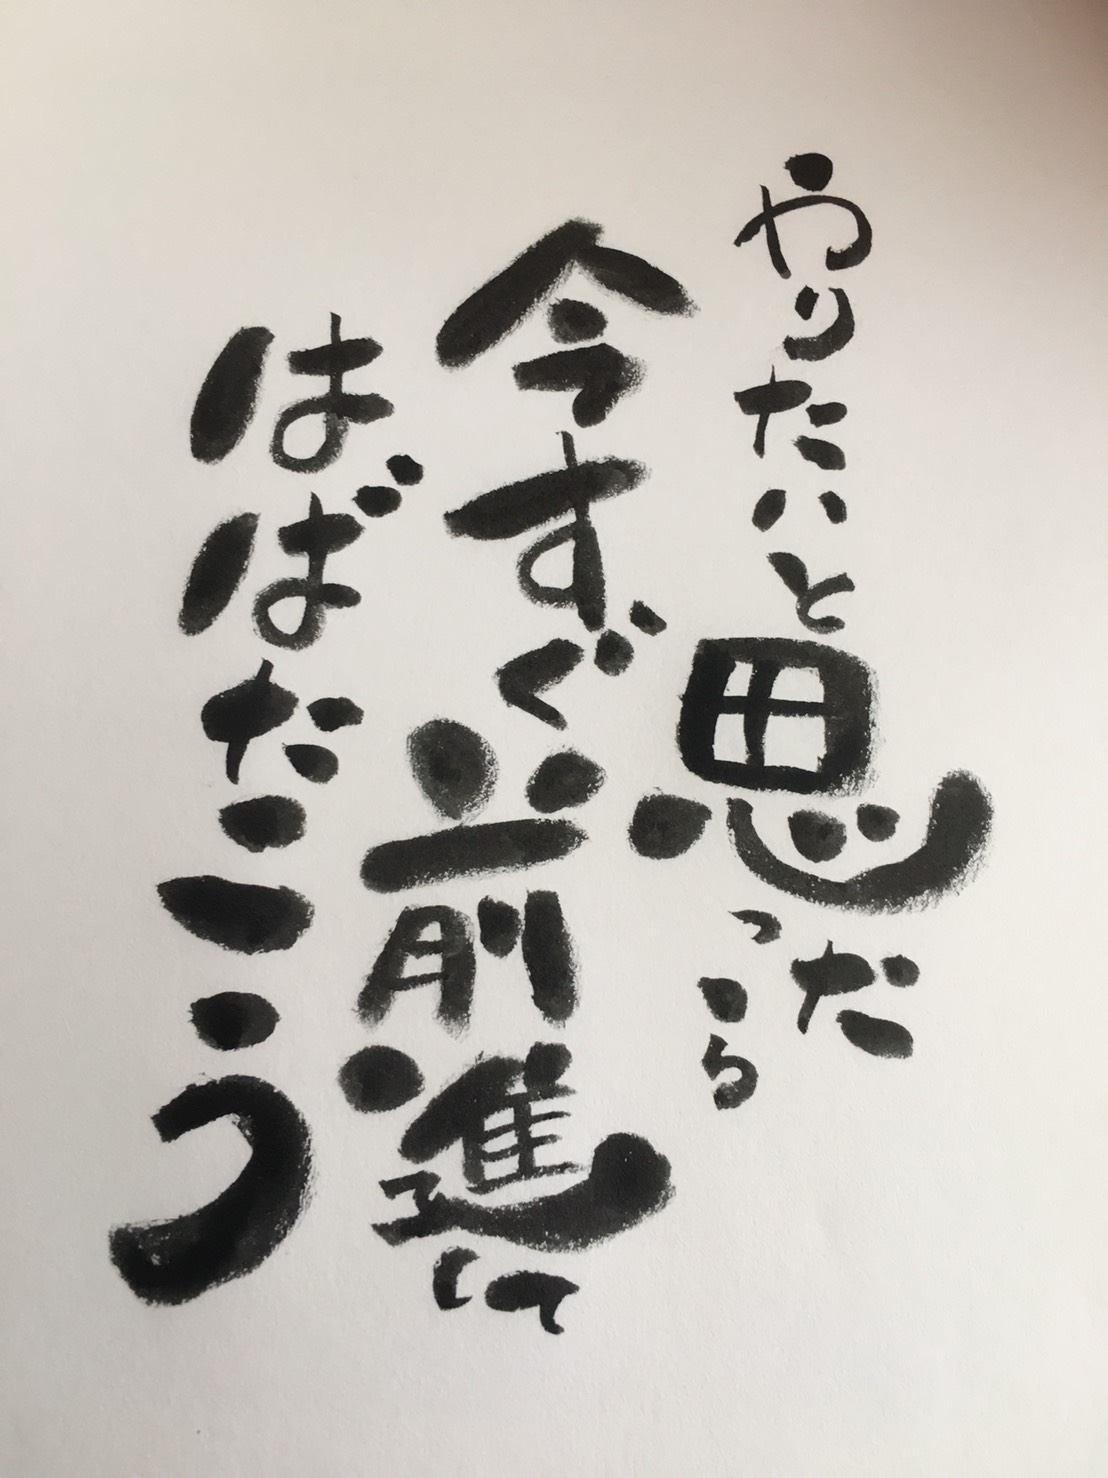 やりたいと思ったら
今すぐ前進して
はばたこう